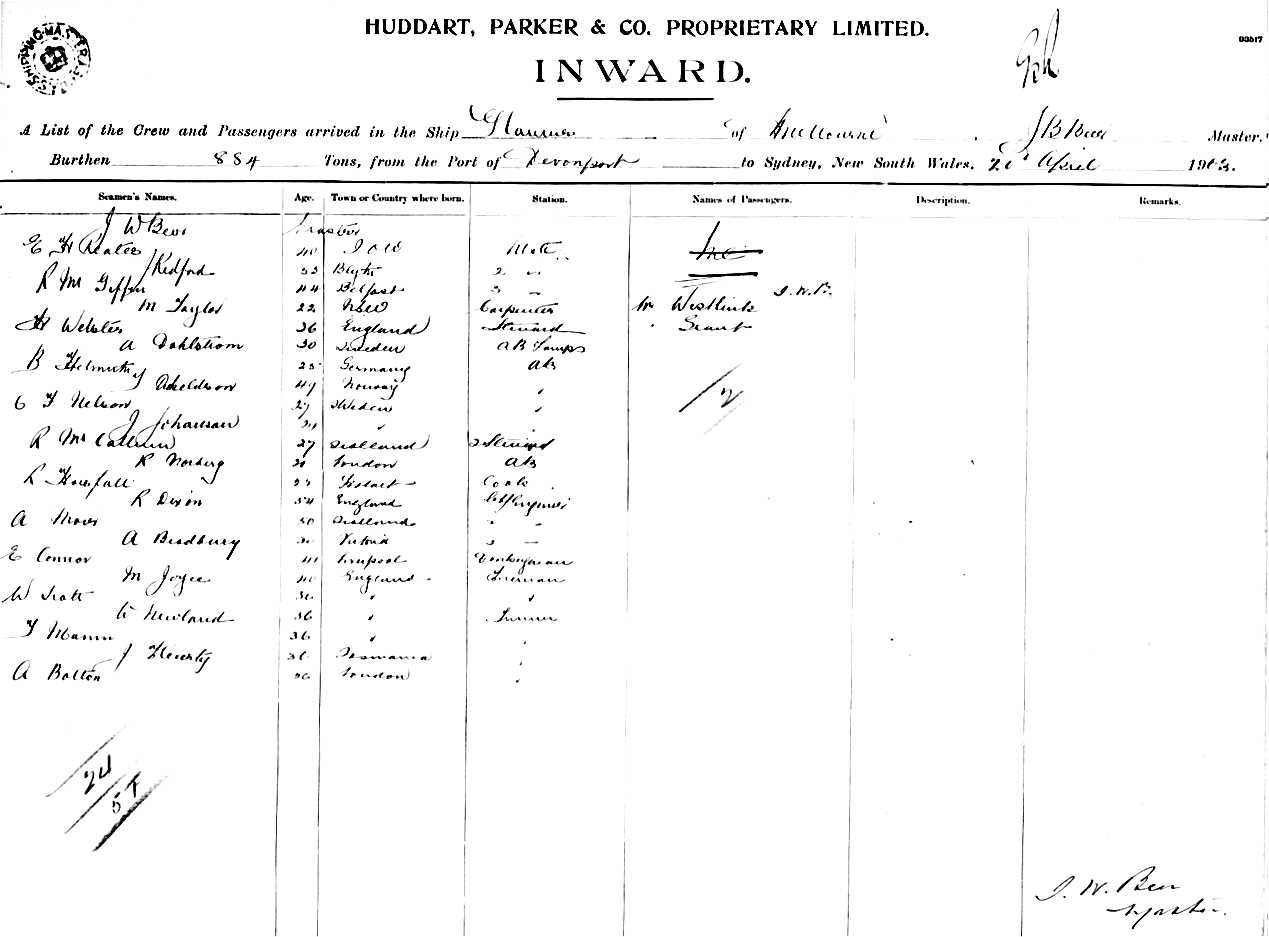 HUDDART, PARKER & CO. PROPRIETARY LIMITED.
93517
INWARD.
A List of the Crew and Passengers arrived in the Ship of Melbourne, Master.
Burthen 884 Tons, from the Port of Devonport to Sydney, New South Wales, 20 April 1903.
Seamen's Names. Age. Town or Country where born. Station. Names of Passengers. Description. Remarks.
J W Bew Master
E H 40 I O W Mate
Redford 33 Blyth 2 "
R Mc Giffin 44 Belfast 3 "
M Taylor 22 NSW Carpenter Mr
H Webster 36 England Steward " Grant
A Dahlstrom 30 Sweden AB Lamps
B 25 Germany AB
49 Norway "
C F Nelson 27 Sweden "
J Johansan "
R Mc Callum 27 Scotland 2 Steward
R Norberg London AB
R Horsfall 23 Hobart Cook
R Dixon 54 England Chf Engineer
A 30 Scotland 2 "
A Bradbury 30 Victoria 3 "
E Connor 41 Liverpool Donkeyman
M Joyce 40 England Fireman
W Scott 36 " "
W Newland 36 " Trimmer
F Mannin 36 "
J 36 Tasmania "
A Bolton 36 London "
/2
24
J. W. Bew
Master.